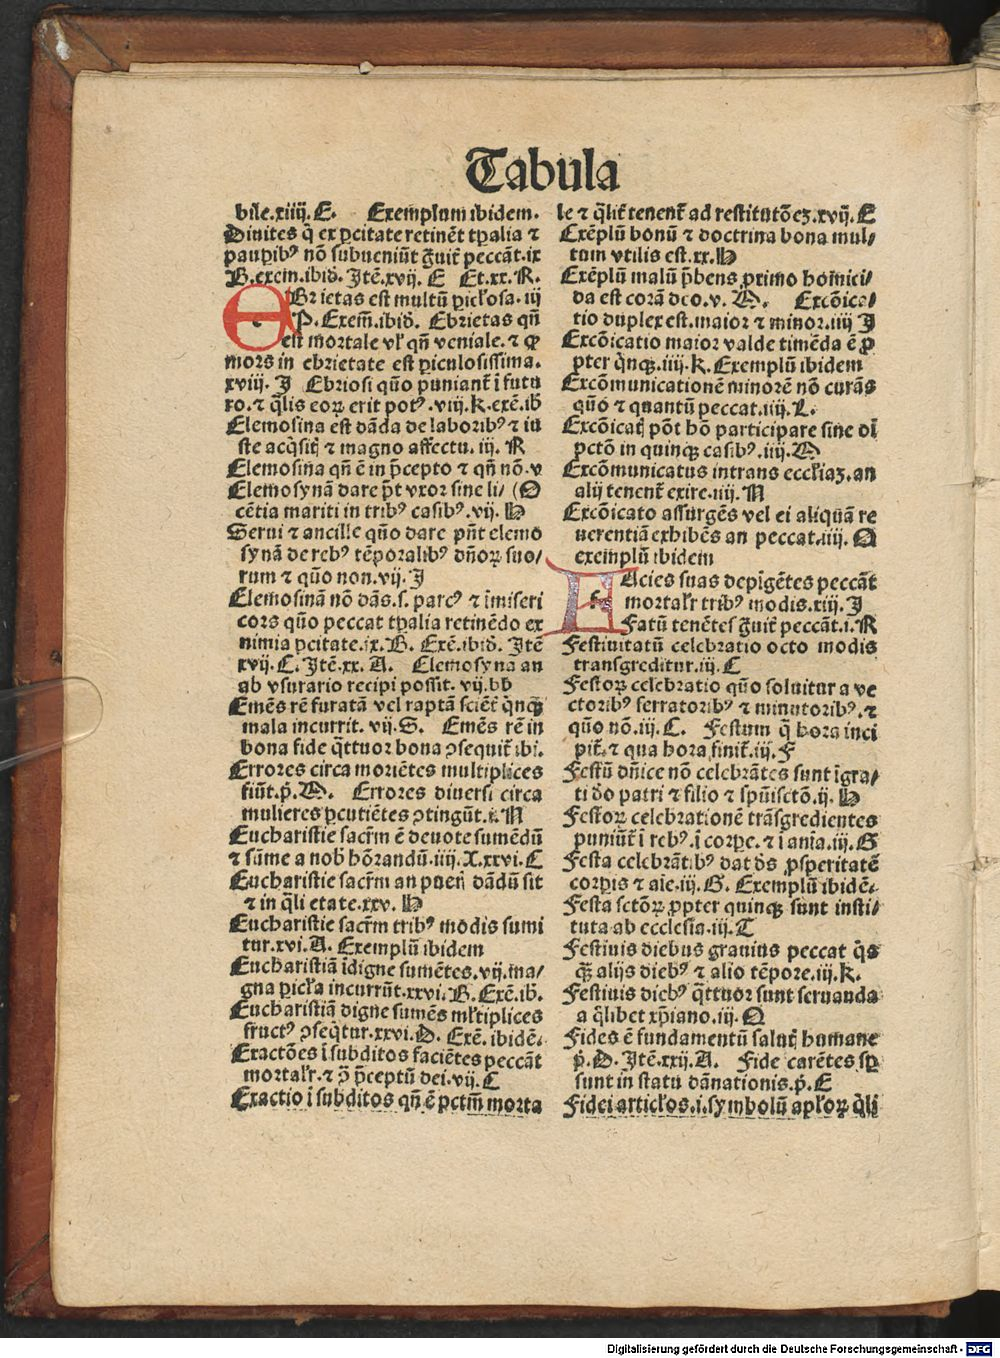 Tabula
bile.xiiij.E. Exemplum ibidem.
Diuites q̄ ex ꝑcitate retinēt tꝑalia ⁊
pauꝑibꝰ nō subueniūt g̃uit̃ peccāt.ix
B.exem.ibiđ. Itē.xvij. E Et.xx. R.
EBrietas est multū ꝑicl̕osa.iij
P. Exem̄.ibiđ. Ebrietas qn̄
est mortale vl̕ qn̄ veniale. ⁊ ꝙ
mors in ebrietate est ꝑiculosissima.
xviij. J Ebriosi quo puniant̃ ī futu
ro.⁊ q̄lis eoꝝ erit potꝰ.viij.k.exē.ib̄
Elemosina est dāda de laboribꝰ ⁊ iu
ste acq̄sit̃ ⁊ magno affectu. iij. N
Elemosina qn̄ ē in p̄cepto ⁊ qn̄ nō. v
Elemosynā dare p̄t vxor sine li/ (O
cētia mariti in tribꝰ casibꝰ.vij. H
Serui ⁊ ancille quo dare pn̄t elemo
synā de rebꝰ tēporalibꝰ dn̄oꝝ suo/
rum ⁊ quo non.vij. J
Elemosinā nō dās.s. parcꝰ ⁊ īmiseri
cors quo peccat tꝑalia retinēdo ex
nimia ꝑcitate.ix. B. Exē.ibiđ. Itē
xvij. C. Itē.xx. A. Elemosyna an
ab vsurario recipi possit. vij.bb
Emēs rē furatā vel raptā sciēt̃ q̄nqꝫ
mala incurrit. vij. S. Emēs rē in
bona fide q̄ttuor bona ꝯsequit̃ ibi.
Errores circa moriētes multiplices
fiūt.p̄. M. Errores diuersi circa
mulieres ꝑcutiētes ꝯtingūt.i. N
Eucharistie sacr̄m ē deuote sumēdū
⁊ sūme a nob̄ hōrandū.iiij.X.xxvi.C
Eucharistie sacr̄m an pueri dādū sit
⁊ in q̄li etate.xxv. H
Eucharistie sacr̄m tribꝰ modis sumi
tur.xvi. A. Exemplū ibidem
Eucharistiā īdigne sumētes.vij.ma/
gna ꝑicl̕a incurrūt.xxvi. B. Exē.ib̄.
Eucharistiā digne sumēs ml̕tiplices
fructꝰ ꝯseq̄tur.xxvi. D. Exē. ibidē.
Exactōes ī subditos faciētes peccāt
mortal̕r.⁊ ꝯ̄ p̄ceptū dei.vij. C
Exactio ī subditos qn̄ ē pctm̄ morta
le ⁊ q̄lit̃ tenent̃ ad restitutōeꝫ.xvij. E
Exēplū bonū ⁊ doctrina bona mul/
tum vtilis est.xx. H
Exēplū malū p̄bens ꝓximo homici/
da est corā deo.v. M. Excōica/
tio duplex est.maior ⁊ minor.iiij J
Excōicatio maior valde timēda ē ꝓ
pter q̄nqꝫ.iiij.k. Exemplū ibidem
Excōmunicationē minorē nō curās
quo ⁊ quantū peccat.iiij. L.
Excōicat̃ pōt hō participare sine oī
pctō in quinqꝫ casibꝰ.iiij. M
Excōmunicatus intrans eccl̕iaꝫ.an
alij tenent̃ exire.iiij. N
Excōicato assurgēs vel ei aliquā re
uerentiā exhibēs an peccat.iiij. O
exemplū ibidem
FAcies suas depīgētes peccāt
mortal̕r tribꝰ modis.xiij. J
Fatū tenētes g̃uit̃ peccāt.i. R
Festiuitatū celebratio octo modis
transgreditur.iij. C
Festoꝝ celebratio quo soluitur a ve
ctoribꝰ serratoribꝰ ⁊ minutoribꝰ.⁊
quo nō.iij. C. Festum q̄ hora inci
pit̃.⁊ qua hora finit̃.iij. F
Festū dn̄ice nō celebrātes sunt īgra/
ti đo patri ⁊ filio ⁊ spūisctō.ij. H
Festoꝝ celebrationē trāsgredientes
puniūt̃ ī rebꝰ. ī corꝑe. ⁊ ī anīa.iij. G
Festa celebrātibꝰ dat đs ꝓsperitatē
corꝑis ⁊ aīe.iij. G. Exemplū ibidē.
Festa sctōꝝ ꝓpter quinqꝫ sunt insti/
tuta ab ecclesia.iij. T
Festiuis diebus grauius peccat q̄s
qꝫ̃ alijs diebꝰ ⁊ alio tēpore.iij. k.
Festiuis diebꝰ q̄ttuor sunt seruanda
a q̄libet xp̄iano.iij. O
Fides ē fundamentū salut̃ humane
p̄. D. Itē.xxij. A. Fide carētes sꝑ
sunt in statu dānationis.p̄. E
Fidei articl̕os.i.symbolū apl̕oꝝ q̄li
Digitalisierung gefördert durch die Deutsche Forschungsgemeinschaft - DFG